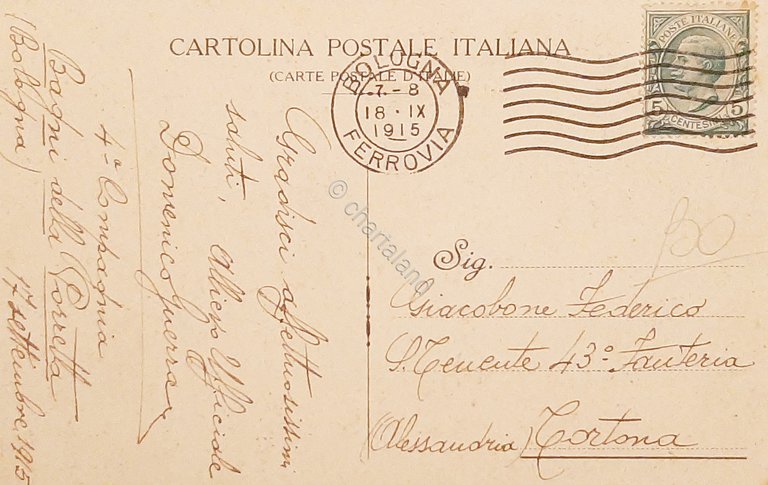 CARTOLINA POSTALE ITALIANA
(CARTE POSTALE D'ITALIE)
BOLOGNA
7-8
18·IX
1915
FERROVIA
POSTE ITALIANE
5 5
CENTESIMI
Gradisci affettuosissimi
saluti, Allievo Ufficiale
Domenico Guerra
4ª Compagnia
Bagni della Porretta
(Bologna) 17 settembre 1915
Sig.
Giacobone Federico
S. Tenente 43° Fanteria
(Alessandria) Tortona
50
© chartaland